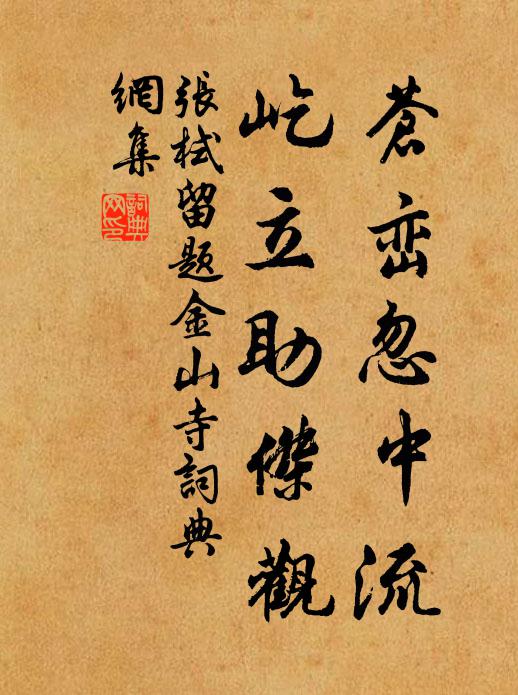 蒼峦忽中流
屹立助傑觀
張栻留题金山寺詞典
網集
詞典
网印